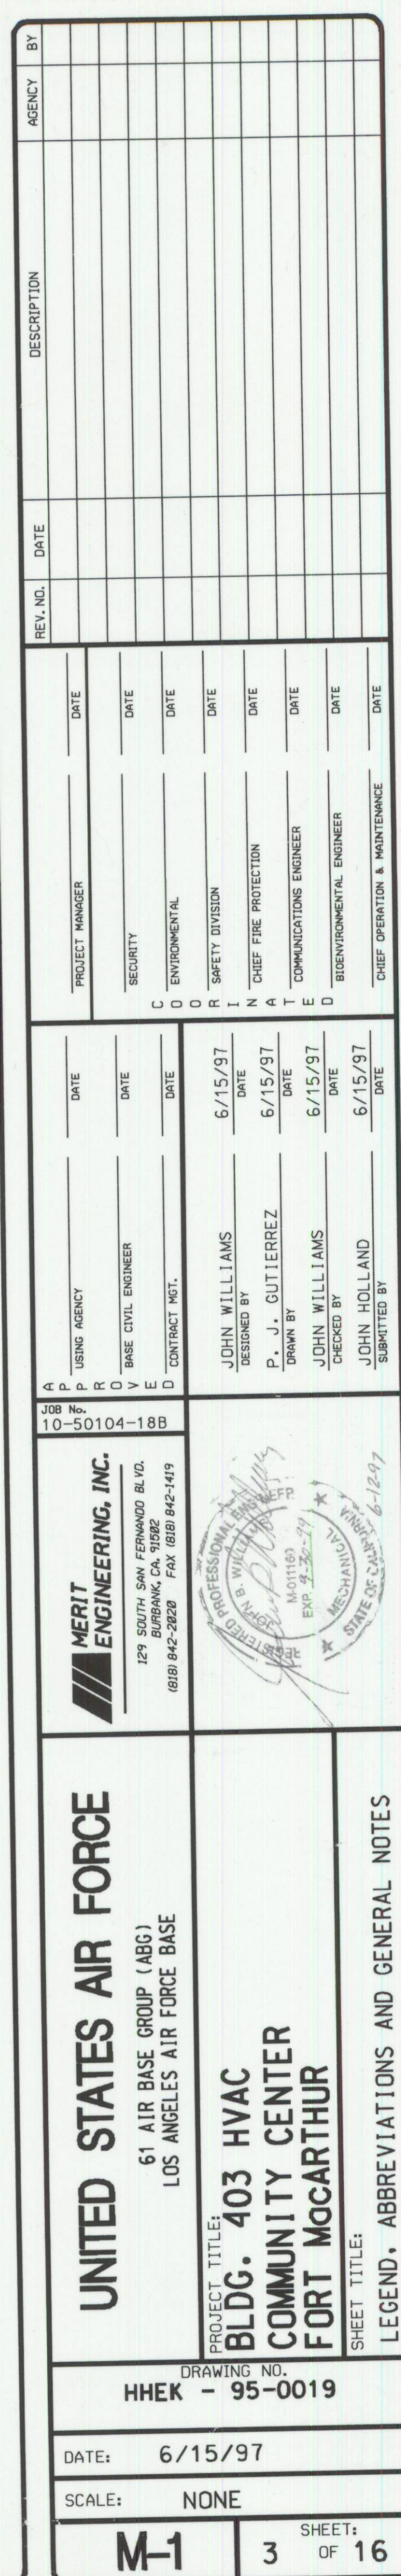 REV. NO. DATE DESCRIPTION AGENCY BY
PROJECT MANAGER DATE
COORINATED
SECURITY DATE
ENVIRONMENTAL DATE
SAFETY DIVISION DATE
CHIEF FIRE PROTECTION DATE
COMMUNICATIONS ENGINEER DATE
BIOENVIRONMENTAL ENGINEER DATE
CHIEF OPERATION & MAINTENANCE DATE
APPROVED
USING AGENCY DATE
BASE CIVIL ENGINEER DATE
CONTRACT MGT. DATE
JOHN WILLIAMS 6/15/97
DESIGNED BY DATE
P. J. GUTIERREZ 6/15/97
DRAWN BY DATE
JOHN WILLIAMS 6/15/97
CHECKED BY DATE
JOHN HOLLAND 6/15/97
SUBMITTED BY DATE
JOB No.
10-50104-18B
MERIT
ENGINEERING, INC.
129 SOUTH SAN FERNANDO BLVD.
BURBANK, CA. 91502
(818) 842-2020 FAX (818) 842-1419
REGISTERED PROFESSIONAL ENGINEER
JOHN B. WILLIAMS
M-011160
EXP. 9-30-99
MECHANICAL
STATE OF CALIFORNIA
6-1297
UNITED STATES AIR FORCE
61 AIR BASE GROUP (ABG)
LOS ANGELES AIR FORCE BASE
PROJECT TITLE:
BLDG. 403 HVAC
COMMUNITY CENTER
FORT MacARTHUR
SHEET TITLE:
LEGEND, ABBREVIATIONS AND GENERAL NOTES
DRAWING NO.
HHEK - 95-0019
DATE: 6/15/97
SCALE: NONE
M-1
SHEET:
3 OF 16